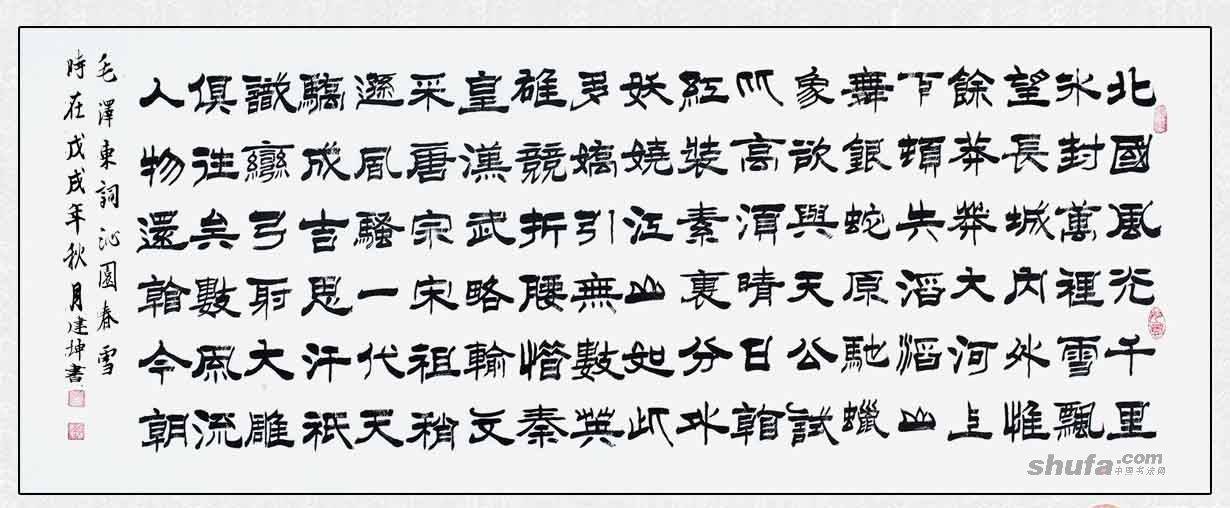 北國風光千里
冰封萬裡雪飄
望長城內外惟
餘莽莽大河上
下頓失滔滔山
舞銀蛇原馳蠟
象欲與天公試
比高須晴日看
紅裝素裹分外
妖嬈江山如此
多嬌引無數英
雄競折腰惜秦
皇漢武略輸文
采唐宗宋祖稍
遜風騷一代天
驕成吉思汗祇
識彎弓射大雕
俱往矣數風流
人物還看今朝
毛澤東詞沁園春雪
時在戊戌年秋月建坤書
shufa.com
中国书法网